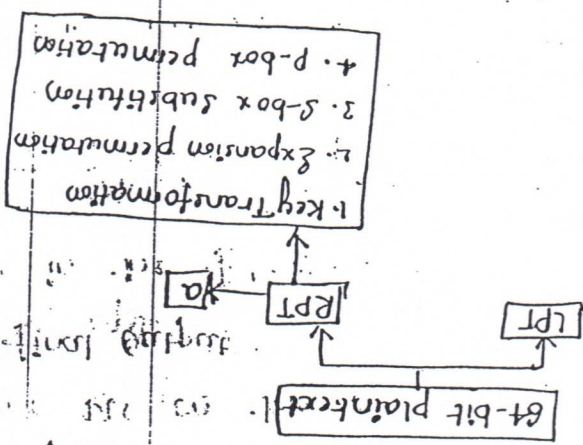 64-bit plaintext
LPT
RPT
a
1. Key Transformation
2. Expansion permutation
3. S-box Substitution
4. P-box permutation